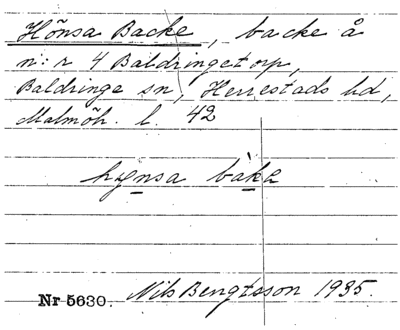 Hönsa Backe, backe å
n:r 4 Baldringetorp,
Baldringe sn, Herrestads hd,
Malmöh. l. 42
hynsa bàka
Nr 5630. Nils Bengtsson 1935.